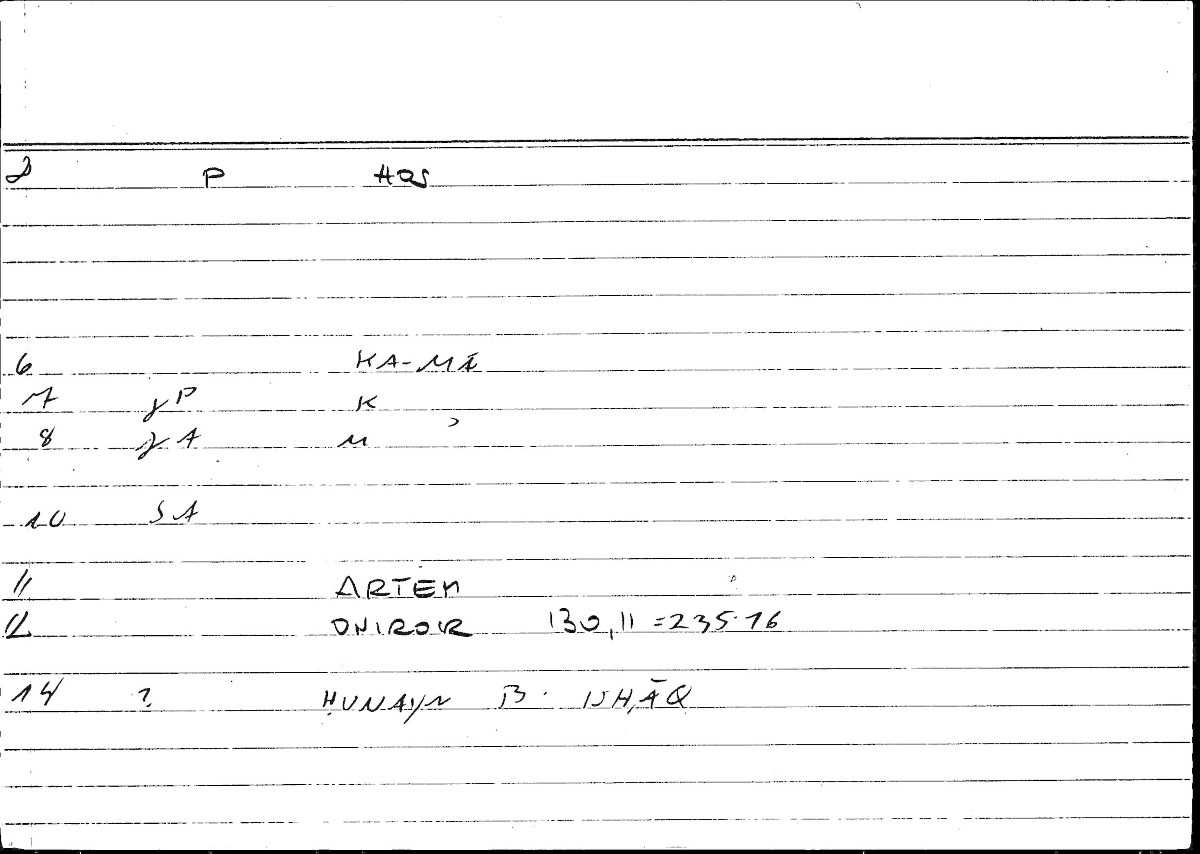 2 P HQS
6 KA-MĀ
7 γP K
8 γA M
10 SA
11 ARTEM
12 ONIROCR 130,11 =235.16
14 ? ḤUNAYN B. ISḤĀQ